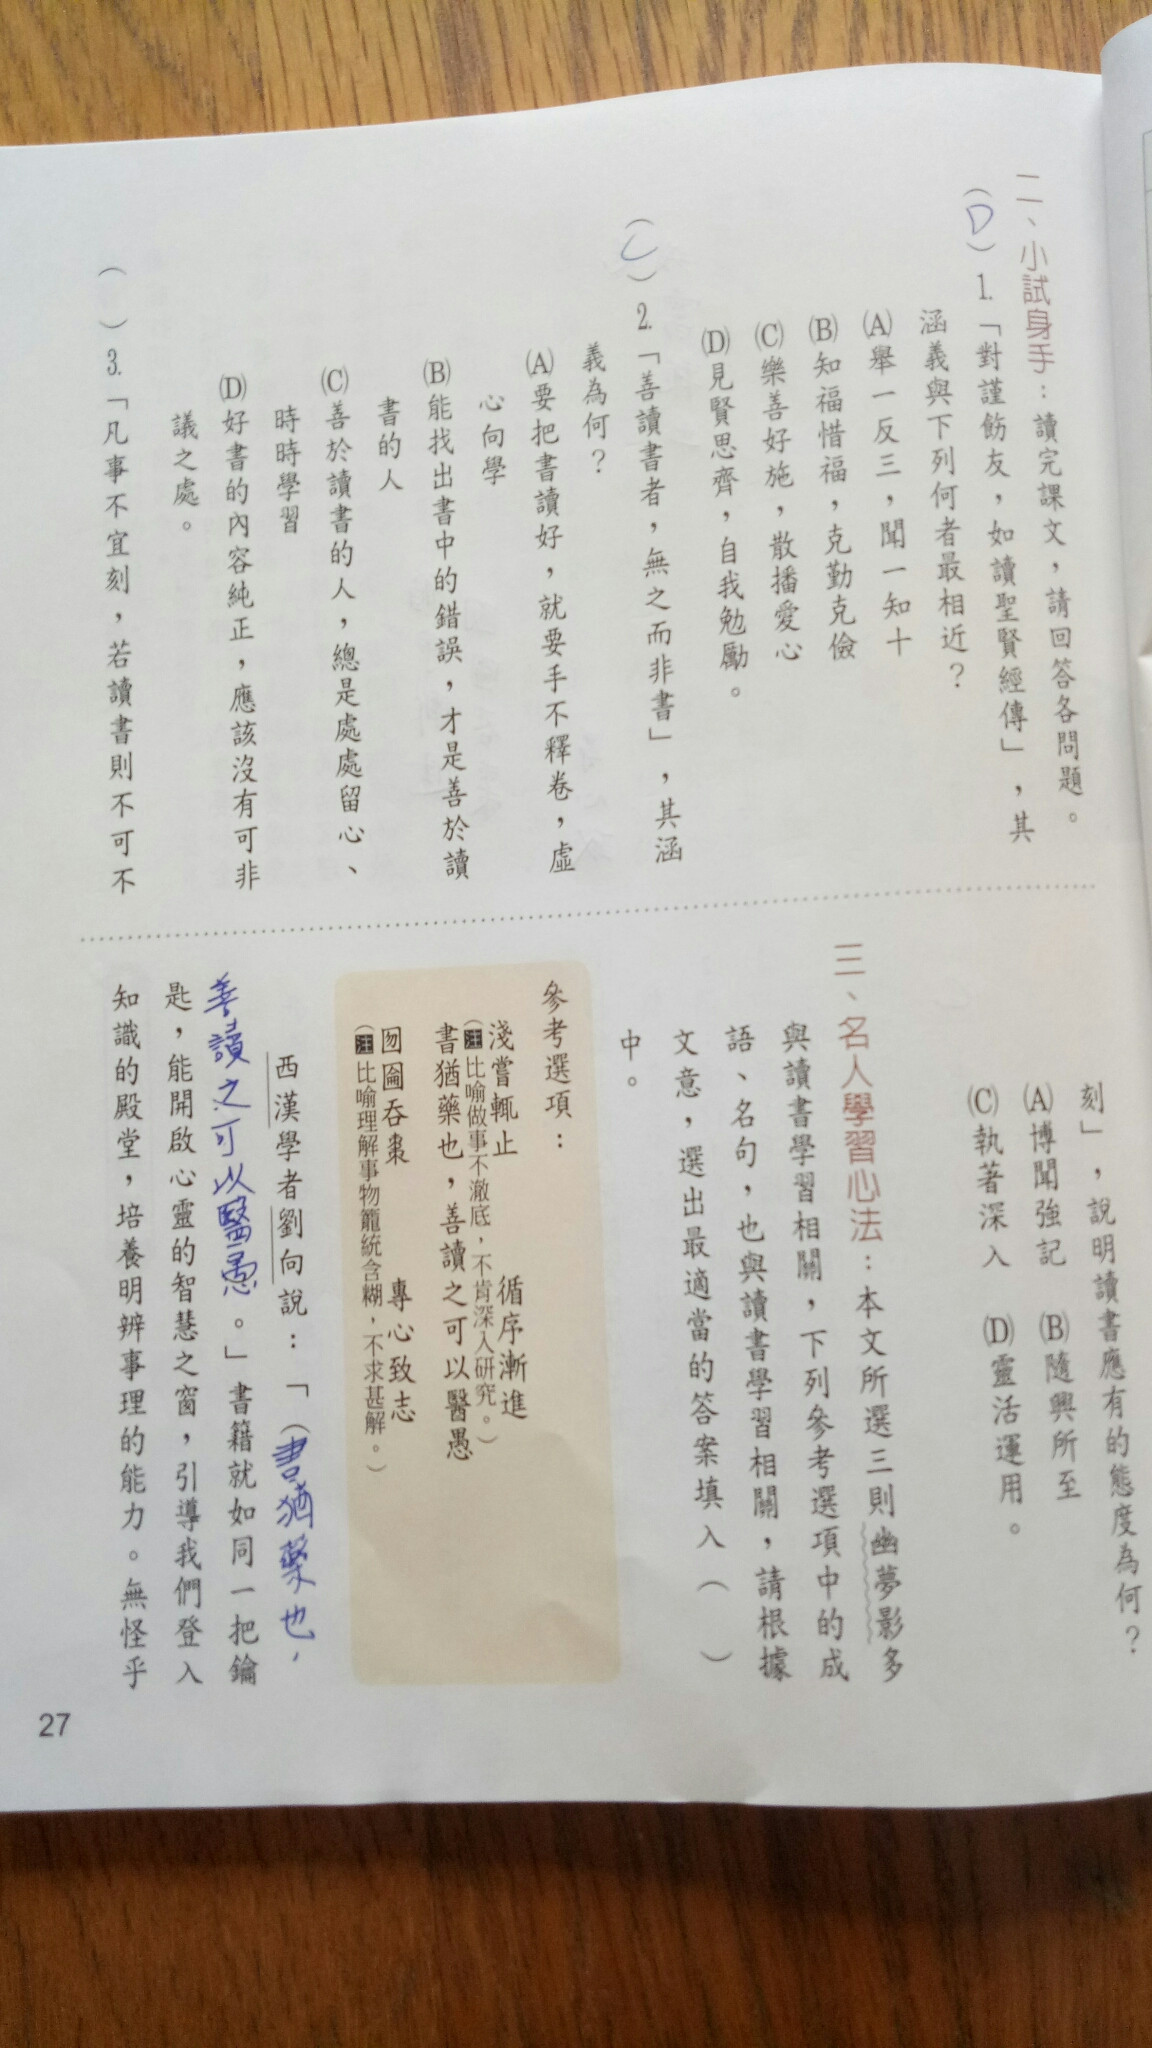 二、小試身手：讀完課文，請回答各問題。
（D）1.「對謹飭友，如讀聖賢經傳」，其
涵義與下列何者最相近？
(A)舉一反三，聞一知十
(B)知福惜福，克勤克儉
(C)樂善好施，散播愛心
(D)見賢思齊，自我勉勵。
（C）2.「善讀書者，無之而非書」，其涵
義為何？
(A)要把書讀好，就要手不釋卷，虛
心向學
(B)能找出書中的錯誤，才是善於讀
書的人
(C)善於讀書的人，總是處處留心、
時時學習
(D)好書的內容純正，應該沒有可非
議之處。
（ ）3.「凡事不宜刻，若讀書則不可不
刻」，說明讀書應有的態度為何？
(A)博聞強記 (B)隨興所至
(C)執著深入 (D)靈活運用。
三、名人學習心法：本文所選三則幽夢影多
與讀書學習相關，下列參考選項中的成
語、名句，也與讀書學習相關，請根據
文意，選出最適當的答案填入（ ）
中。
參考選項：
淺嘗輒止 循序漸進
（注比喻做事不澈底，不肯深入研究。）
書猶藥也，善讀之可以醫愚
囫圇吞棗 專心致志
（注比喻理解事物籠統含糊，不求甚解。）
西漢學者劉向說：「（書猶藥也，
善讀之可以醫愚。」書籍就如同一把鑰
匙，能開啟心靈的智慧之窗，引導我們登入
知識的殿堂，培養明辨事理的能力。無怪乎
27